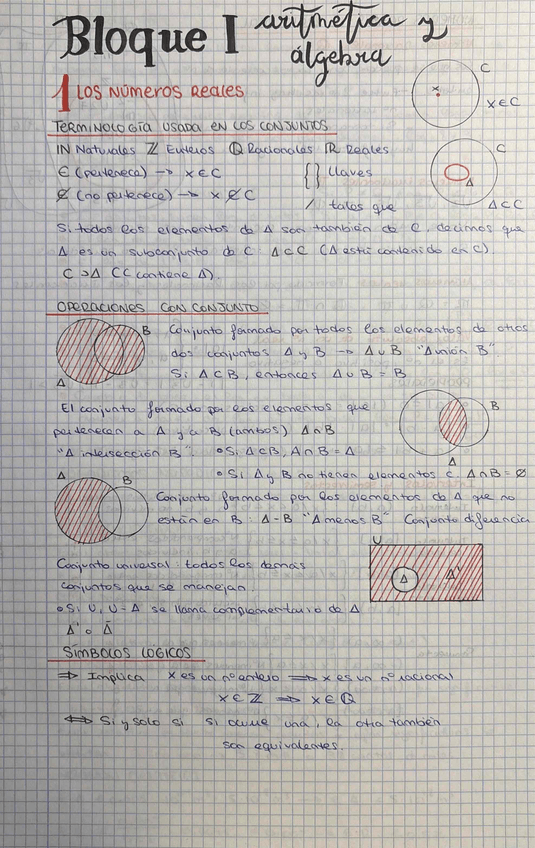 Bloque I aritmética y
álgebra
1 LOS NÚMEROS REALES
C
x
x ∈ C
TERMINOLOGÍA USADA EN LOS CONJUNTOS
ℕ Naturales ℤ Enteros ℚ Racionales ℝ Reales
∈ (pertenece) → x ∈ C { } llaves
∉ (no pertenece) → x ∉ C / tales que
C
A
A ⊂ C
Si todos los elementos de A son también de C, decimos que
A es un subconjunto de C: A ⊂ C (A está contenido en C)
C ⊃ A (C contiene A).
OPERACIONES CON CONJUNTO
A B
Conjunto formado por todos los elementos de otros
dos conjuntos A y B → A ∪ B "A unión B".
Si A ⊂ B, entonces A ∪ B = B
El conjunto formado por los elementos que
pertenecen a A y a B (ambos) A ∩ B
"A intersección B" • Si A ⊂ B, A ∩ B = A
• Si A y B no tienen elementos c. A ∩ B = ∅
B
A
A B
Conjunto formado por los elementos de A que no
están en B: A - B "A menos B" Conjunto diferencia
Conjunto universal: todos los demás
conjuntos que se manejan.
• Si U, U - A se llama complementario de A
A' o Ā
U
A A'
SÍMBOLOS LOGICOS
⇒ Implica x es un nº entero ⇒ x es un nº racional
x ∈ ℤ ⇒ x ∈ ℚ
⇔ Si y solo si si ocurre una, la otra también
son equivalentes.